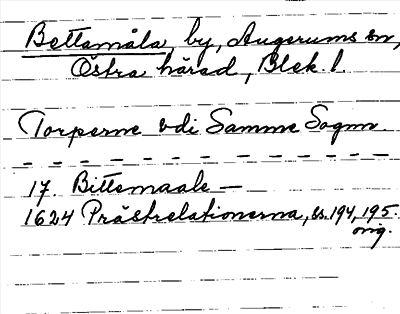 Bettamåla, by, Augerums sn,
Östra härad, Blek. l.
Torperne vdi Samme Sogn.
17. Bittemaale —
1624 Prästrelationerna, ss. 194, 195.
orig.